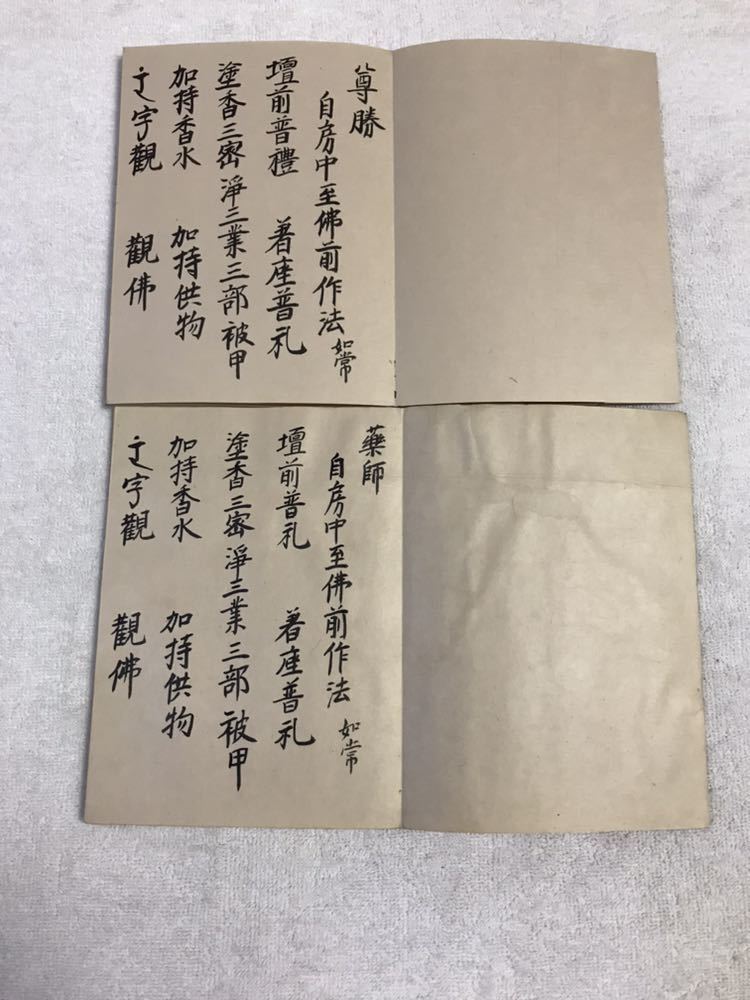 尊勝
自房中至佛前作法 如常
壇前普禮 着座普礼
塗香三密 淨三業三部被甲
加持香水 加持供物
字觀 觀佛
藥師
自房中至佛前作法 如常
壇前普礼 着座普礼
塗香三密 淨三業三部被甲
加持香水 加持供物
字觀 觀佛